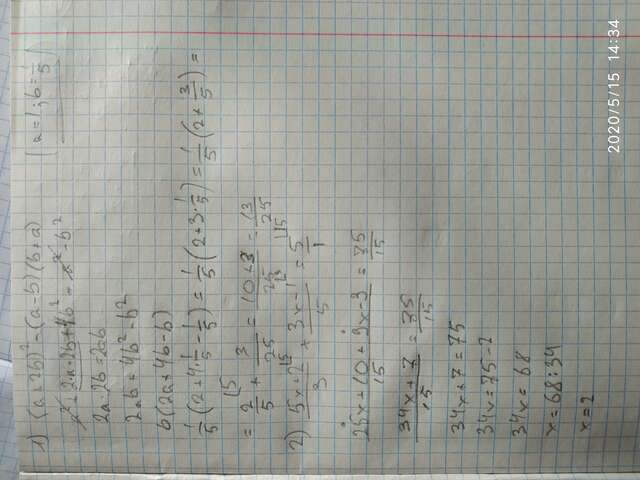 1) (a+2b)²-(a-b)(b+a) (a=1; b=1/5)
a²+2a·2b+4b² = a²-b²
2a·2b=2ab
2ab+4b²-b²
b(2a+4b-b)
1/5(2+4·1/5-1/5)=1/5(2+3·1/5)=1/5(2+3/5)=
=2/5+3/25=10+3/25=13/25
2) 5x+2/3+3x-1/5=5/1
25x+10+9x-3/15=75/15
34x+7/15=75/15
34x+7=75
34x=75-7
34x=68
x=68:34
x=2
2020/5/15 14:34